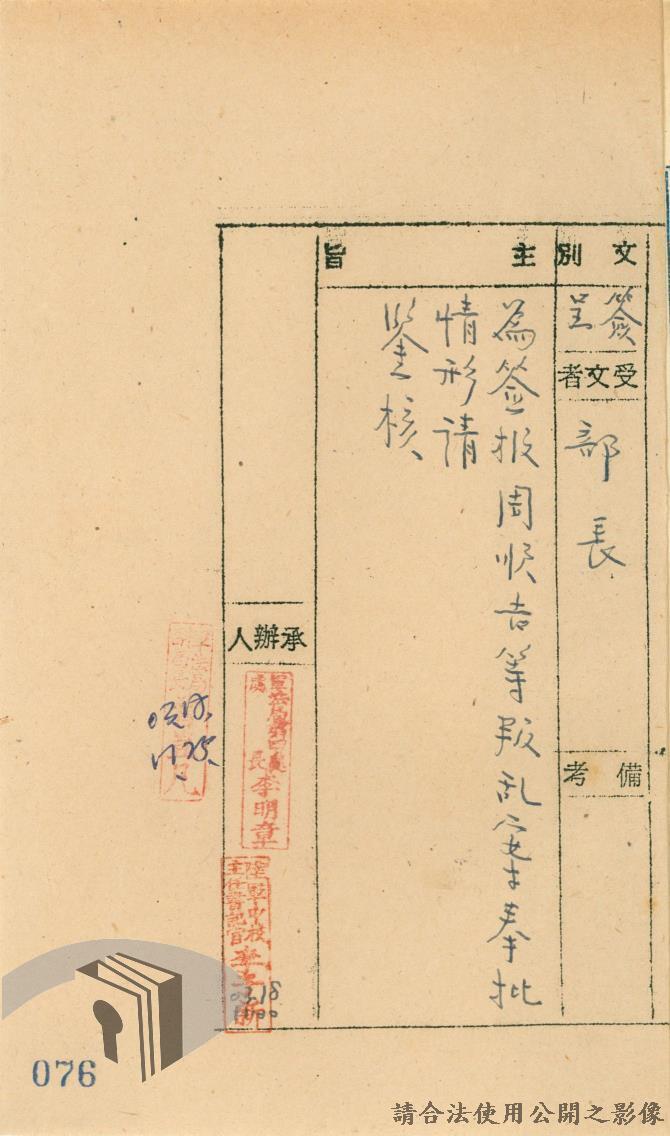 文別
簽呈
受文者
部長
備考
主旨
為簽報周順吉等叛乱案奉批
情形請
鑒核
承辦人
長李明章
陸軍中校
主任書記官
076
請合法使用公開之影像